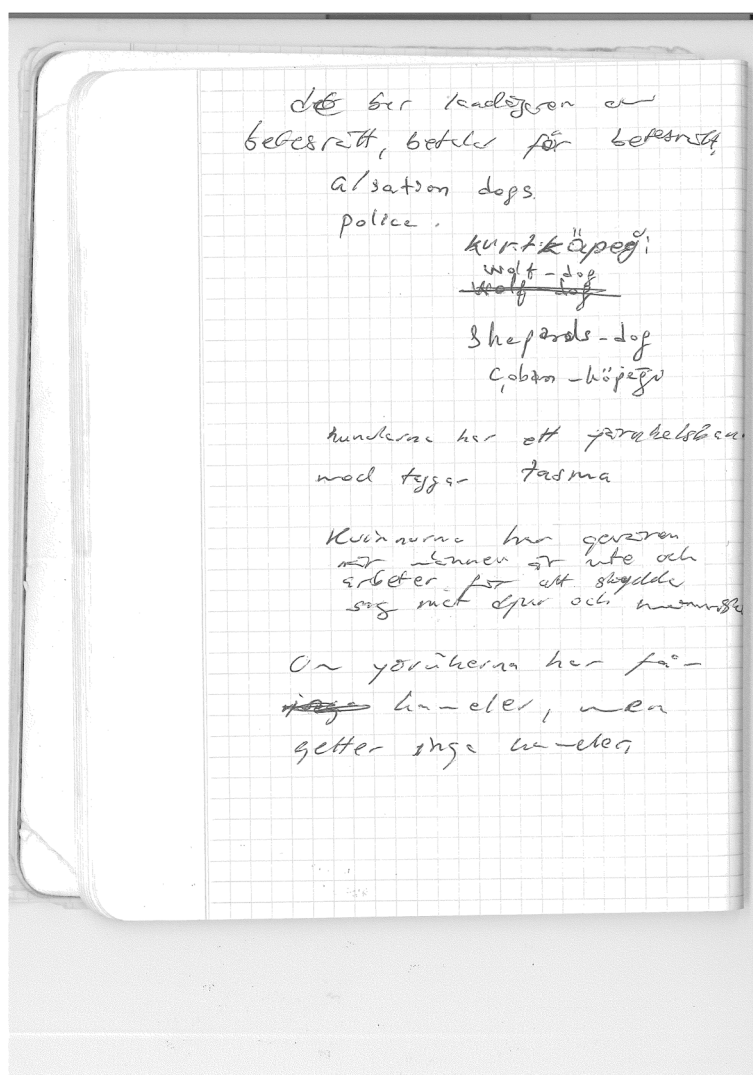 det ber landägaren om
betesrätt, betalar för betesrätt
alsation dogs
police.
kurt köpeği
wolf-dog
wolf dog
Shepards-dog
Çoban-köpeği
hundarna har ett järnhalsban
med taggar tasma
Kvinnorna har gevären
när männen är ute och
arbetar för att skydda
sig mot djur och
Om yörükerna har får
inga kameler, men
getter inga kameler,